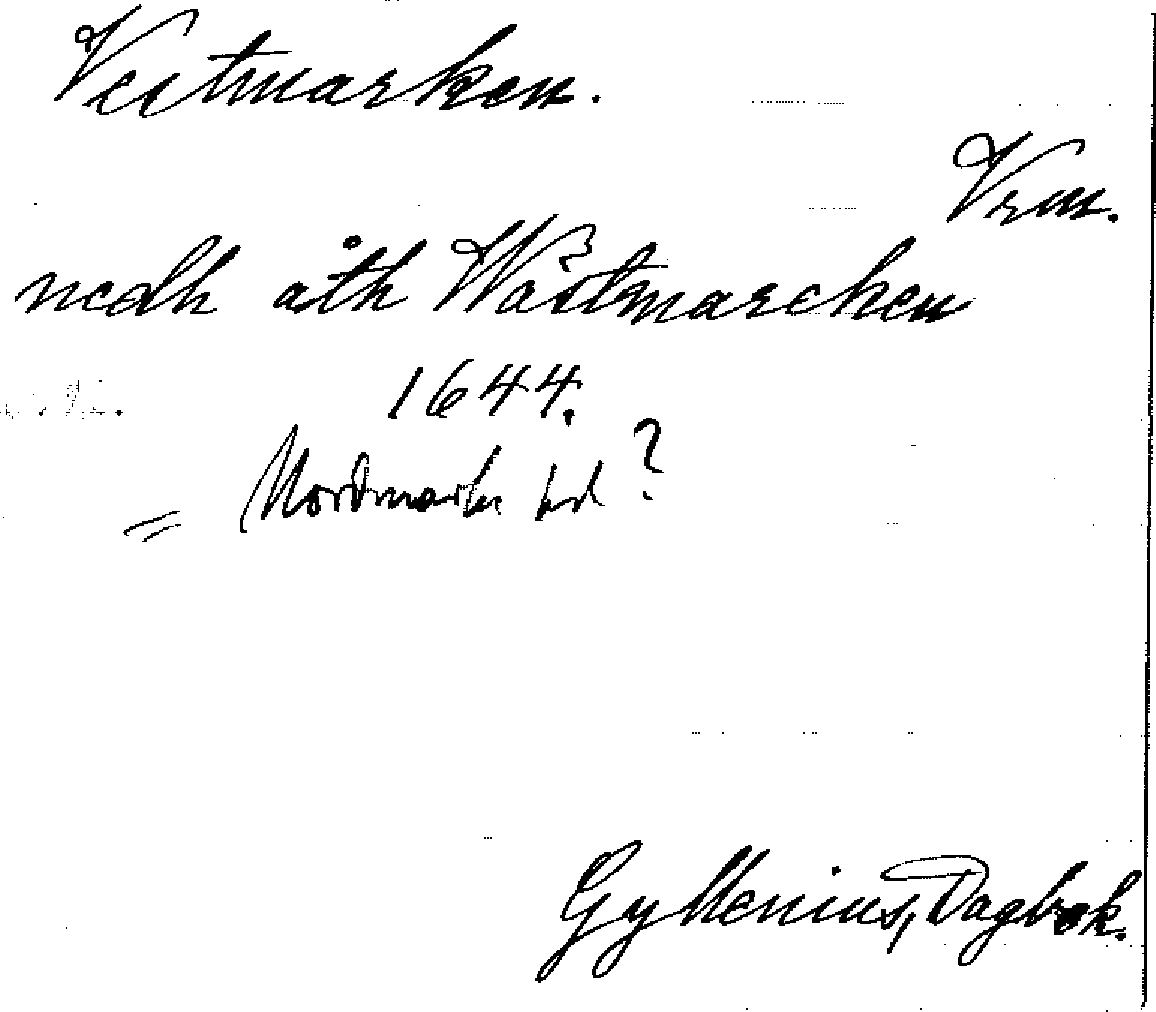 Vestmarken.
Vrm.
nedh åth Wästmarchen
1644.
= Nordmarks hd?
Gyllenius, Dagbok.